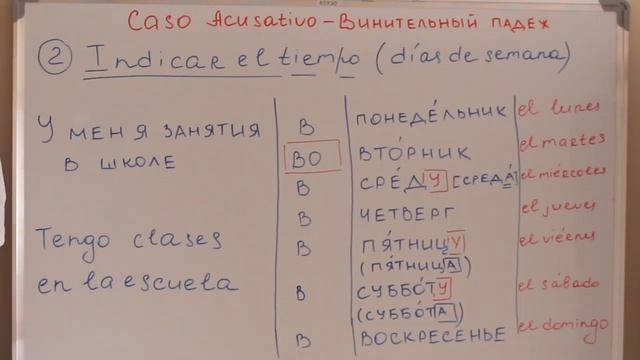 Caso Acusativo - Винительный падеж
② Indicar el tiempo (días de semana)
У меня занятия в школе
Tengo clases en la escuela
В понеде́льник el lunes
ВО вто́рник el martes
В сре́ду [среда́] el miércoles
В четверг el jueves
В пя́тницу el viernes
(пя́тница)
В суббо́ту el sábado
(суббо́та)
В воскресенье el domingo